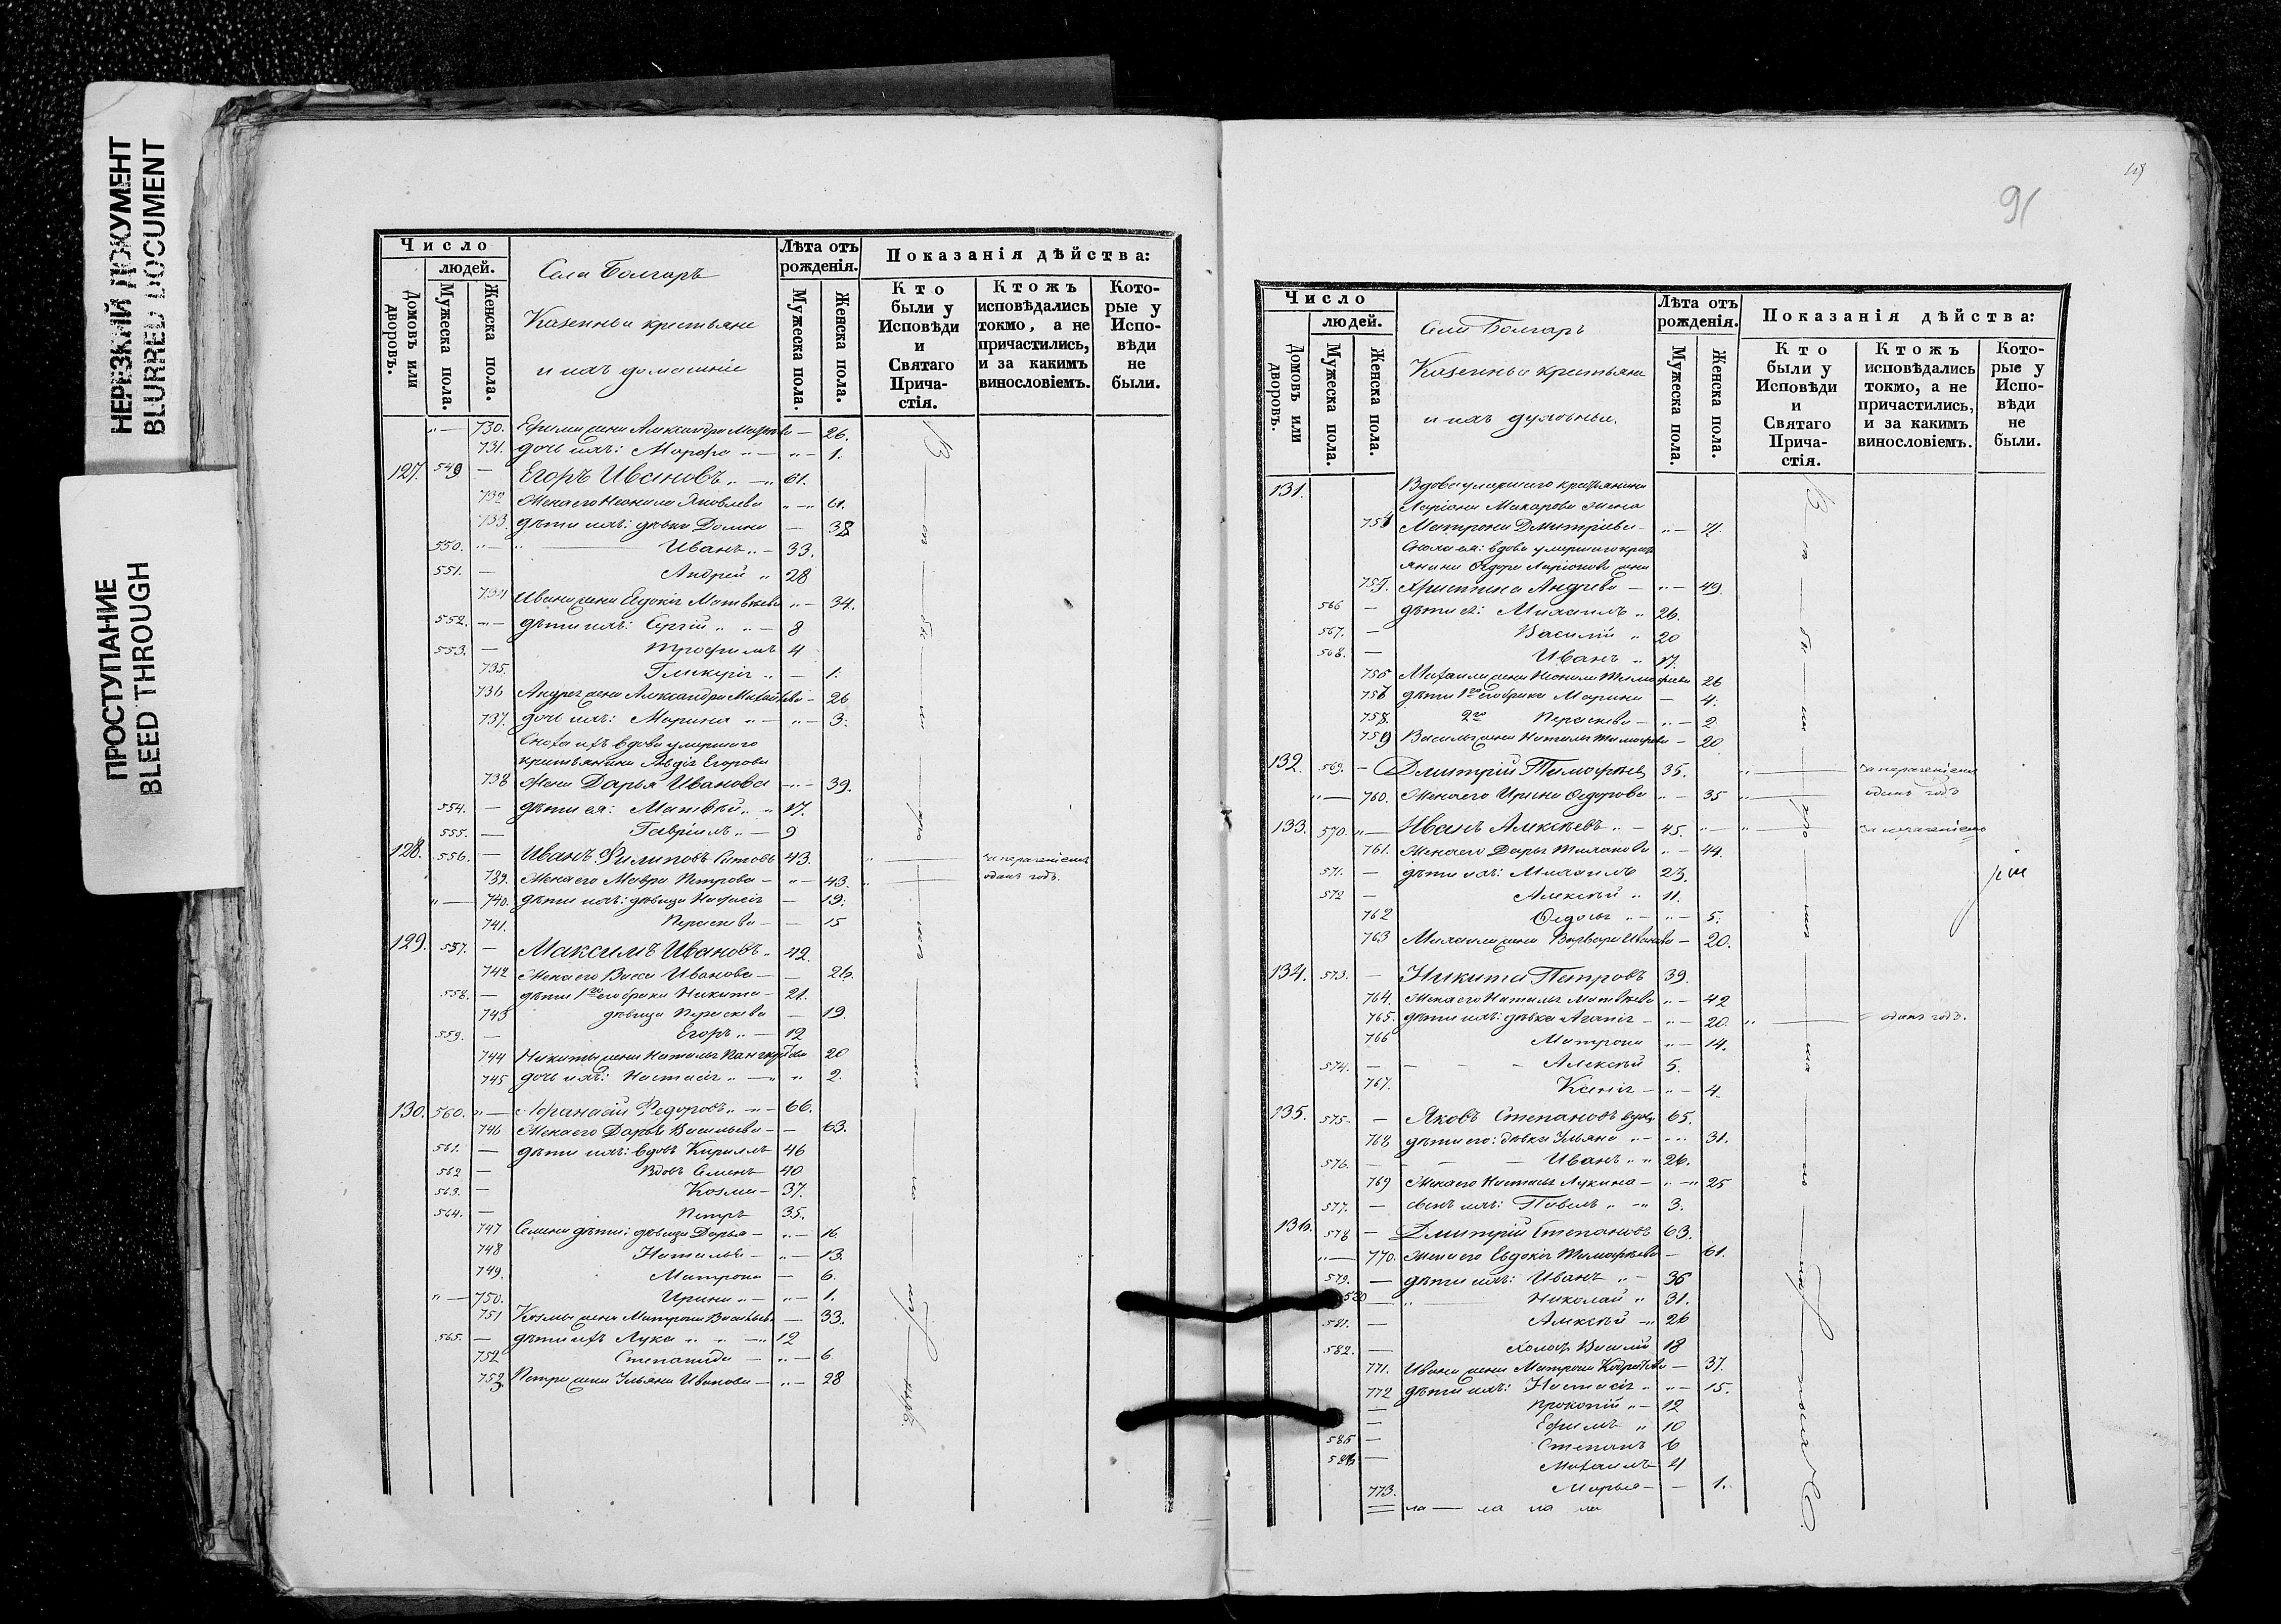 НЕРЕЗКИЙ ДОКУМЕНТ
BLURRED DOCUMENT
ПРОСТУПАНИЕ
BLEED THROUGH
Число
людей.
Домовъ или дворовъ.
Мужеска пола.
Женска пола.
Села Болгаръ
Казенныи крестьяне
и ихъ домашніе
Лѣта отъ рожденія.
Мужеска пола.
Женска пола.
Показанія дѣйства:
Кто были у Исповѣди и Святаго Прича-стія.
Ктожъ исповѣдались токмо, а не причастились, и за какимъ винословіемъ.
Кото-рые у Испо-вѣди не были.
730. Ефима жена Александра 26.
731. дочь ихъ: Марфа 1.
127. 549 Егоръ Ивановъ 61.
732 Жена его Неонила Яковлева 61.
733. дѣти ихъ: дѣвка Домна 38
550. Иванъ 33.
551. Андрей 28
734 Ивана жена Евдокія Матвѣева 34.
552. дѣти ихъ: Сергій 8
553. Трофимъ 4
735. Гликерія 1.
736 Андрея жена Александра Михайлова 26
737. дочь ихъ: Марина 3.
Сноха ихъ вдова умершаго
крестьянина Авдія Егорова
738 жена Дарья Иванова 39.
554. дѣти ея: Матвѣй 17.
555. Гавріилъ 9
128. 556. Иванъ Филиповъ Ситовъ 43. за нерачешіемъ
739. Жена его Мавра Петрова 43. одинъ годъ.
740. дѣти ихъ: дѣвица 19.
741. Параскева 15
129. 557. Максимъ Ивановъ 42.
742 Жена его Васса Иванова 26.
558. дѣти 1го его брака Никита 21.
743 дѣвица Параскева 19.
559. Егоръ 12
744 Никиты жена Наталья 20
745 дочь ихъ: Настасія 2.
130. 560. Афанасій Федоровъ 66.
746 Жена его Дарья Васильева 63.
561. дѣти ихъ: вдовъ Кирилъ 46
562 Вдовъ Семенъ 40
563. Козма 37.
564. Петръ 35.
747 Семена дѣти: дѣвица Дарья 16.
748 Наталья 13.
749. Матрона 6.
750. Ирина 1.
751 Козмы жена Матрона Васильева 33.
565. дѣти ихъ Лука 12
752 Степанида 6
753 Петра жена Ульяна Иванова 28
91
Число
людей.
Домовъ или дворовъ.
Мужеска пола.
Женска пола.
Села Болгаръ
Казенныи крестьяне
и ихъ духовныи.
Лѣта отъ рожденія.
Мужеска пола.
Женска пола.
Показанія дѣйства:
Кто были у Исповѣди и Святаго Прича-стія.
Ктожъ исповѣдались токмо, а не причастились, и за какимъ винословіемъ.
Кото-рые у Испо-вѣди не были.
131. Вдова умершаго крестьянина
Ларіона Макарова жена
754 Матрона Дмитріева 71.
Сноха ея: вдова умершаго крест
янина Федора Ларіонова жена
755. Христина Андреева 49.
566 дѣти ея: Михаилъ 26.
567. Василій 20
568. Иванъ 17.
756 Михаила жена Неонила Тимофеева 26
757 дѣти 1го его брака Марина 4.
758. 2го Параскева 2
759 Василья жена Наталья Тимофеева 20
132. 569. Дмитрій Тимофѣевъ 35. за нерачешіемъ
760. Жена его Ирина Федорова 35 одинъ годъ
133. 570. Иванъ Алексѣевъ 45. за нерачешіемъ
761. Жена его Дарья 44.
571. дѣти ихъ: Михаилъ 23.
572 Алексѣй 11.
762 Федосья 5.
763 Михаила жена Варвара Иванова 20.
134. 573. Никита Петровъ 39.
764. Жена его Наталья Матвѣева 42
765. дѣти ихъ: дѣвка Агапія 20. одинъ годъ.
766 Матрона 14.
574. Алексѣй 5.
767. Ксенія 4.
135. 575. Яковъ Степановъ вдовъ 65.
768 дѣти его: дѣвка Ульяна 31.
576. Иванъ 26.
769 Жена его Настасья Лукина 25
577. сынъ ихъ: Павелъ 3.
136. 578 Дмитрій Степановъ 63.
770. Жена его Евдокія Тимофѣева 61.
579. дѣти ихъ: Иванъ 36
580 Николай 31.
581. Алексѣй 26
582. холостъ Василій 18
771. Ивана жена Матрона 37.
772 дѣти ихъ: Настасія 15.
Прокопій 12
Ефимъ 10
585 Степанъ 6
586 Михаилъ 4
773. Марья 1.